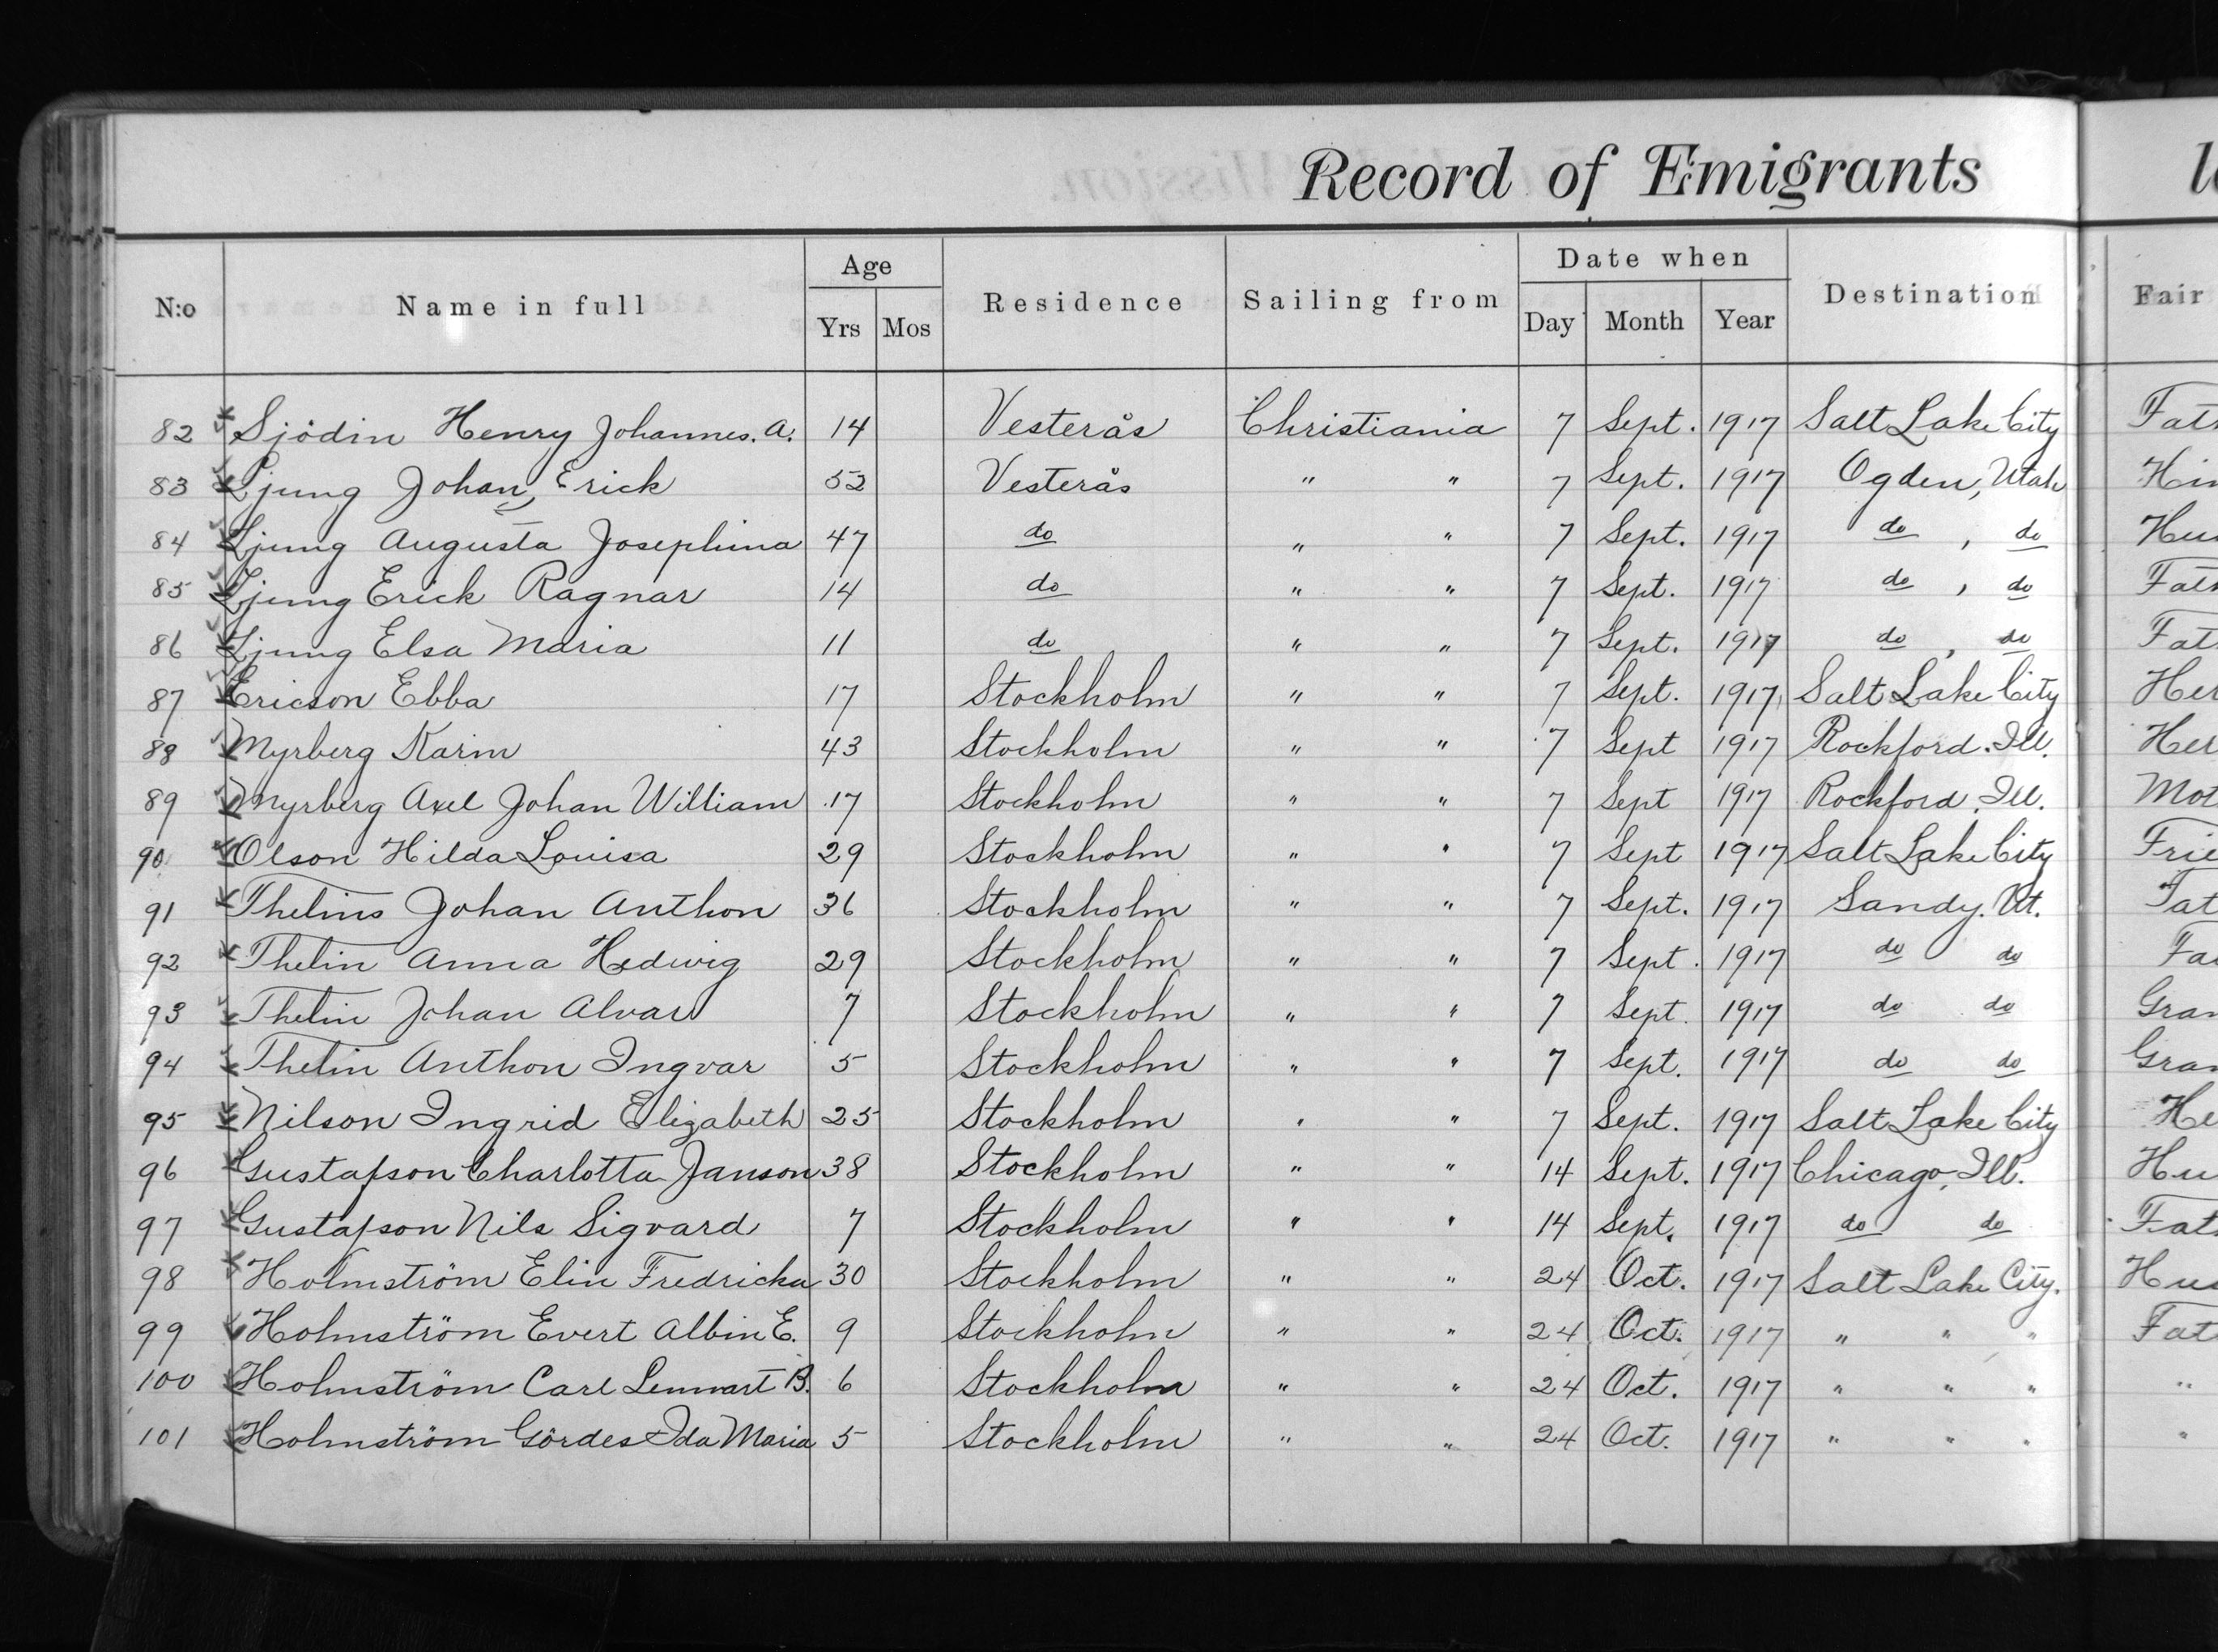 Record of Emigrants
N:o Name in full Age Yrs Mos Residence Sailing from Date when Day Month Year Destination Fair
82 Sjödin Henry Johannes. A. 14 Vesterås Christiania 7 Sept. 1917 Salt Lake City Fath
83 Ljung Johan, Erick 52 Vesterås " " 7 Sept. 1917 Ogden, Utah Him
84 Ljung Augusta Josephina 47 do " " 7 Sept. 1917 do , do Hus
85 Ljung Erick Ragnar 14 do " " 7 Sept. 1917 do , do Fath
86 Ljung Elsa Maria 11 do " " 7 Sept. 1917 do , do Fat
87 Ericson Ebba 17 Stockholm " " 7 Sept. 1917 Salt Lake City Her
88 Myrberg Karin 43 Stockholm " " 7 Sept 1917 Rockford. Ill. Her
89 Myrberg Axel Johan William 17 Stockholm " " 7 Sept 1917 Rockford, Ill. Mot
90 Olson Hilda Louisa 29 Stockholm " " 7 Sept 1917 Salt Lake City Frie
91 Thelins Johan Anthon 36 Stockholm " " 7 Sept. 1917 Sandy. Ut. Fat
92 Thelin Anna Hedwig 29 Stockholm " " 7 Sept. 1917 do do Fa
93 Thelin Johan Alvar 7 Stockholm " " 7 Sept. 1917 do do Gran
94 Thelin Anthon Ingvar 5 Stockholm " " 7 Sept. 1917 do do Gran
95 Nilson Ingrid Elizabeth 25 Stockholm " " 7 Sept. 1917 Salt Lake City He
96 Gustafson Charlotta Janson 38 Stockholm " " 14 Sept. 1917 Chicago, Ill. Hu
97 Gustafson Nils Sigvard 7 Stockholm " " 14 Sept. 1917 do do Fat
98 Holmström Elin Fredricka 30 Stockholm " " 24 Oct. 1917 Salt Lake City. Hus
99 Holmström Evert Albin E. 9 Stockholm " " 24 Oct. 1917 " " " Fat
100 Holmström Carl Lennart B. 6 Stockholm " " 24 Oct. 1917 " " " "
101 Holmström Gördes Ida Maria 5 Stockholm " " 24 Oct. 1917 " " " "